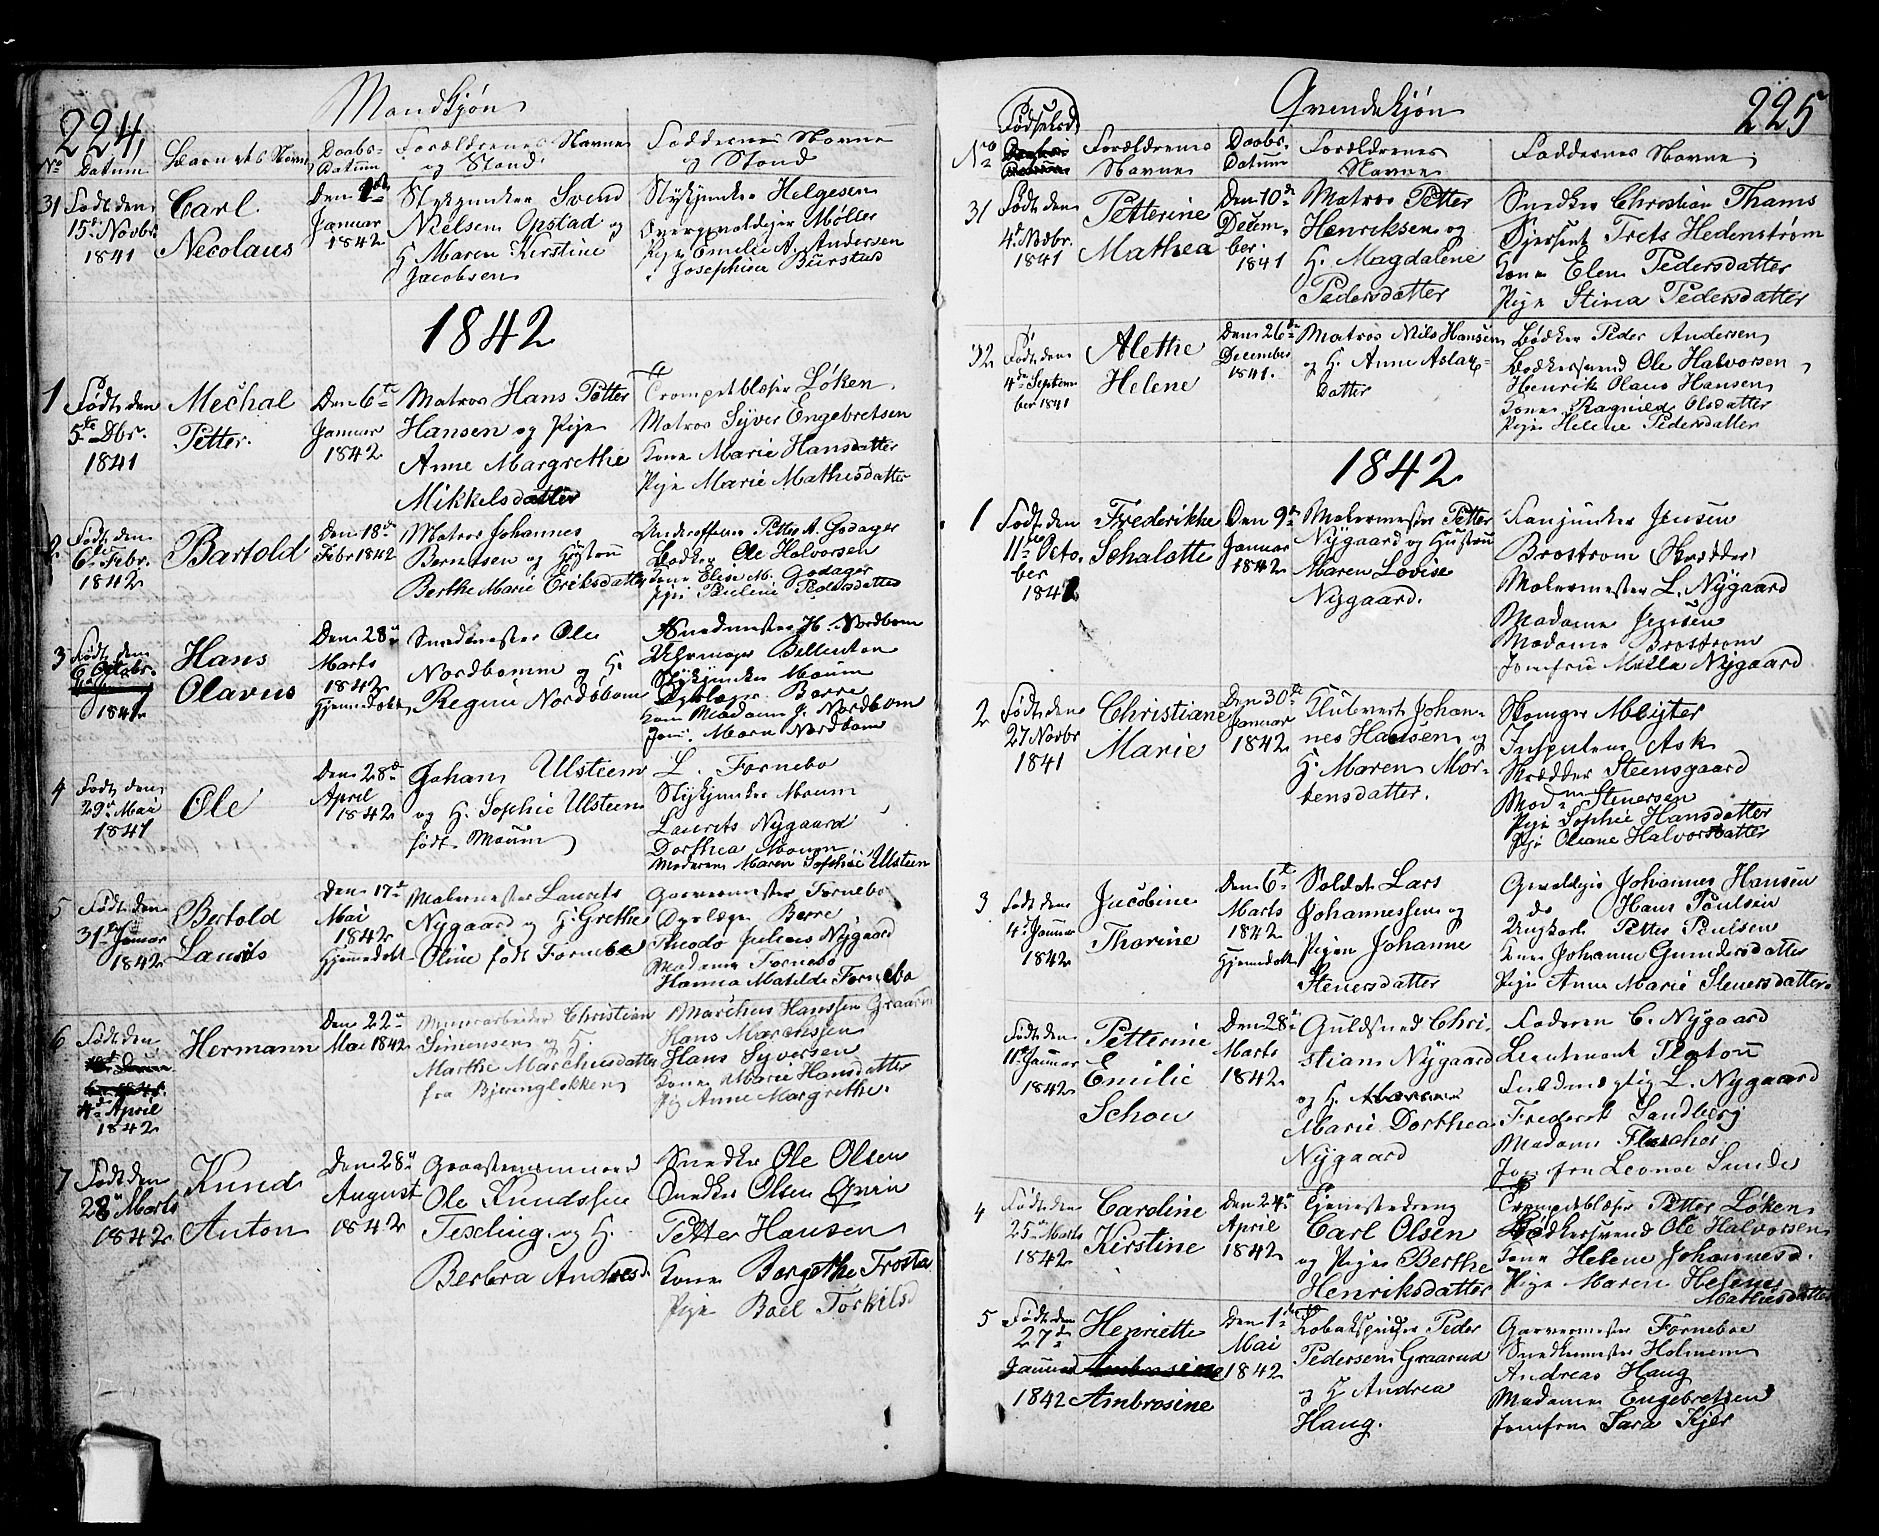 224
Mandkjøn
No Datum
Barnets Navn
Daabs-
Datum
Forældrenes Navne
og Stand
Faddernes Navne
og Stand
31 Født den
15de Novbr.
1841
Carl
Necolaus
Den
Januar
1842
Stykjunker Svend
Nielsen Opstad og
H. Maren Kirstine
Jacobsen
Stykjunker Helgesen
Overgevaldiger Møller
Pige Emilie A. Andersen
Josephine Burstad
1842
1 Født den
5te Dbr.
1841
Mechal
Petter
Den 6te
Januar
1842
Matros Hans Petter
Hansen og Pige
Anne Margrethe
Mikkelsdatter
Trompetblæser Løken
Matros Syver Engebretsen
Kone Marie Hansdatter
Pige Marie Mathisdatter
2 Født den
6te Febr.
1842
Bartold
Den 18de
Febr 1842
Matros Johannes
Berntsen og Hustru
Berthe Marie Eriksdatter
Underofficer Petter A. Godager
Bødker Ole Halvorsen
Kone Elise M. Godager
Pige Pauline Pedersdatter
3 Født den
6 Octobr.
1841
Hans
Olavus
Den 28de
Marts
1842
Hjemmedøbt
Snedkermester Ole
Nordbomm og H.
Regine Nordbom
Snedkermester H. Nordbom
Uhrmager Bellenton
Stykjunker Moum
Dyrlæge Borre
Kone Madame J. Nordbom
Jomf. Maren Nordbom
4 Født den
29de Mai
1841
Ole
Den 28de
April
1842
Johan Ulsteen
og H. Sophie Ulsteen
født Moum
L. Fornebo
Stykjunker Moum
Laurits Nygaard
Dorthea Moum
Moderen Maren Sophie Ulsteen
5 Født den
31te Januar
1842
Bertold
Laurits
Den 17de
Mai
1842
Hjemmedøbt
Malermester Laurits
Nygaard og H. Grethe
Oline født Fornebo
Garvermester Fornebo
Dyrlæge Borre
Theodor Julius Nygaard
Madame Fornebo
Hanna Matilde Fornebo
6 Født den
4de April
1842
Hermann
Den 22de
Mai 1842
Minearbeider Christian
Simensen og H.
Marthe Marchusdatter
fra Bjerringløkken
Marchus Hanssen Graarud
Hans Marchussen
Hans Syversen
Kone Marie Hansdatter
Pig Anne Margrethe.
7 Født den
28de Marts
1842
Knud
Anton
Den 28de
August
1842
Graastensminerer
Ole Knudssen
Texling og H.
Berbra Andresd.
Snedker Ole Olsen
Snedker Olsen Qvin
Petter Hansen
Kone Bergethe Frosta
Pige Boel Torkilsd
225
Qvindekjøn
No
Fødselsd.
Forældrenes
Navne
Daabs.
Datum
Forældrenes
Navne
Faddernes Navne
31 Født den
4de Novbr.
1841
Petterine
Mathea
Den 10de
Decem-
ber
1841
Matros Petter
Henriksen og
H. Magdalene
Pedersdatter
Snedker Christian Thams
Sjersent Frets Hedenstrøm
Kone Elen Pedersdatter
Pige Stina Pedersdatter
32 Født den
4de Septem-
ber 1841
Alethe
Helene
Den 26de
December
1841.
Matros Niels Hansen
og H. Anne Aslak-
datter
Bødker Peder Andersen
Bødkersvend Ole Halvorsen
Henrik Olaus Hansen
Kone Ragnild Olsdatter
Pige Helene Pedersdatter
1842
1 Født den
11te Octo-
ber
1841
Frederikke
Schalotte
Den 9de
Januar
1842
Malermester Petter
Nygaard og Hustru
Maren Lovise
Nygaard.
Fanjunker Jensen
Brostrom Skrædder
Malermester L. Nygaard
Madame Jensen
Madame Brostrom
Jomfrue Milla Nygaard
2 Født den
27 Novbr
1841
Christiane
Marie
Den 30te
Januar
1842
Klubvert Johan-
nes Hansen og
H. Maren Mor-
tensdatter.
Skomager Meyter
Inspecteur Ask
Skrædder Steensgaard
Madm Stenersen
Pige Sophie Hansdatter
Pige Oleane Halvorsdatter
3 Født den
4de Januar
1842
Jacobine
Thorine
Den 6te
Marts
1842
Hjemmedøbt
Soldat Lars
Johannessen og
Pigen Johanne
Stenersdatter
Gevaldiger Johannes Hansen
do Hans Poulsen
Ungkarl Petter Poulsen
Kone Johanne Gundersdatter
Pige Anne Marie Stenersdatter
Født den
11te Januar
1842
Petterine
Emilie
Schou
Den 28de
Marts
1842
Guldsmed Chri-
stian Nygaard
og H.
Marie Dorthea
Nygaard
Faderen C. Nygaard
Lieutenant Platou
Fuldmægtig L. Nygaard
Frederek Sandberg
Madame Fleischer
Jomfru Leonore Sunde
4 Født den
25de Marts
1842
Caroline
Kirstine
Den 24de
April
1842
Tjenestedreng
Carl Olsen
og Pige Berthe
Henriksdatter
Trompetblæser Petter Løken
Bødkersvend Ole Halvorsen
Kone Helene Johannesd.
Pige Maren Helene
Mathisdatter
5 Født den
27de
Januar
1842
Henriette
Ambrosine
Den 1ste
Mai
1842
Tobakspinder Peder
Pedersen Graarud
og H. Andrea
Haug.
Garvermester Forneboe
Snedkermester Holmen
Andreas Haug
Madame Engebretsen
Jomfru Sara Kjær